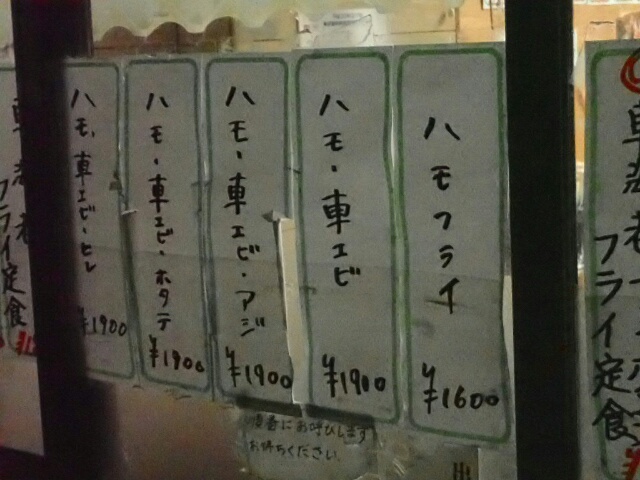 ハモフライ
¥1600
ハモ・車エビ
¥1900
ハモ・車エビ・アジ
¥1900
ハモ・車エビ・ホタテ
¥1900
ハモ・車エビ・ヒレ
¥1900
フライ定食
フライ定食
順番にお呼びします
お待ちください。